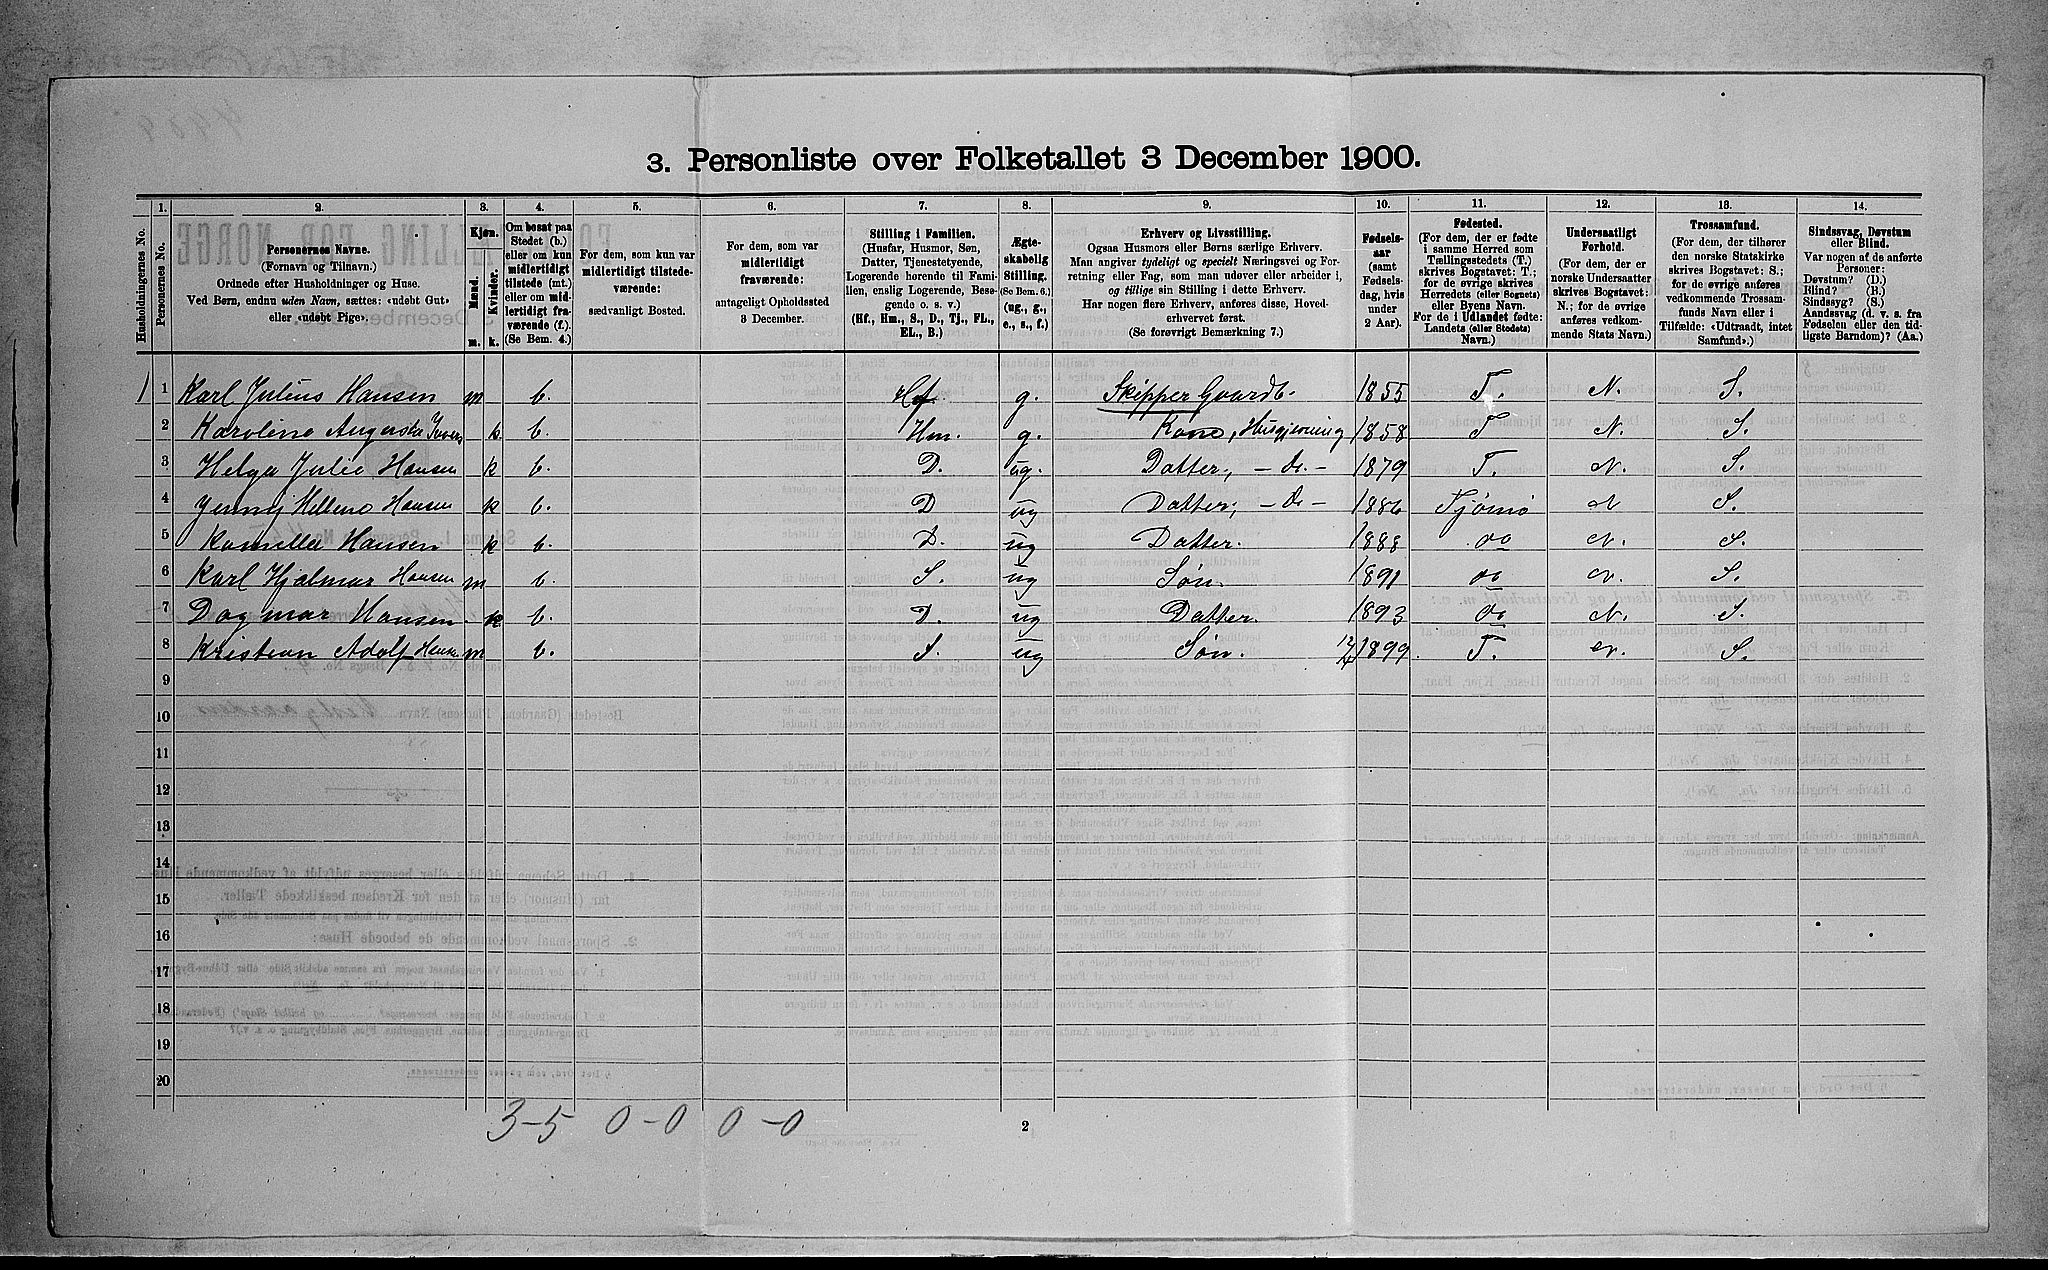 3. Personliste over Folketallet 3 December 1900.
1. 2. 3. 4. 5. 6. 7. 8. 9. 10. 11. 12. 13. 14.
Husholdningernes No.
Personernes No.
Personernes Navne.
(Fornavn og Tilnavn.)
Ordnede efter Husholdninger og Huse.
Ved Børn, endnu uden Navn, sættes: «udøbt Gut»
eller «udøbt Pige».
Kjøn.
Mænd.
Kvinder.
m. k.
Om bosat paa
Stedet (b.)
eller om kun
midlertidigt
tilstede (mt.)
eller om mid-
lertidigt fra-
værende (f.).
(Se Bem. 4.)
For dem, som kun var
midlertidigt tilstede-
værende:
sædvanligt Bosted.
For dem, som var
midlertidigt
fraværende:
antageligt Opholdssted
3 December.
Stilling i Familien.
(Husfar, Husmor, Søn,
Datter, Tjenestetyende,
Logerende hørende til Fami-
lien, enslig Logerende, Besø-
gende o. s. v.)
(Hf., Hm., S., D., Tj., FL.,
EL., B.)
Ægte-
skabelig
Stilling.
(Se Bem. 6.)
(ug., g.,
e., s., f.)
Erhverv og Livsstilling.
Ogsaa Husmors eller Børns særlige Erhverv.
Man angiver tydeligt og specielt Næringsvei og For-
retning eller Fag, som man udøver eller arbeider i,
og tillige sin Stilling i dette Erhverv.
Har nogen flere Erhverv, anføres disse, Hoved-
erhvervet først.
(Se forøvrigt Bemærkning 7.)
Fødsels-
aar
(samt
Fødsels-
dag, hvis
under
2 Aar).
Fødested.
(For dem, der er fødte
i samme Herred som
Tællingsstedets (T.)
skrives Bogstavet: T.;
for de øvrige skrives
Herredets (eller Sognets)
eller Byens Navn.
For de i Udlandet fødte:
Landets (eller Stedets)
Navn.)
Undersaatligt
Forhold.
(For dem, der er
norske Undersaatter
skrives Bogstavet:
N.; for de øvrige
anføres vedkom-
mende Stats Navn.)
Trossamfund.
(For dem, der tilhører
den norske Statskirke
skrives Bogstavet: S.;
for de øvrige anføres
vedkommende Trossam-
funds Navn eller i
Tilfælde: «Udtraadt, intet
Samfund».)
Sindssvag, Døvstum
eller Blind.
Var nogen af de anførte
Personer:
Døvstum? (D.)
Blind? (B.)
Sindssyg? (S.)
Aandssvag (d. v. s. fra
Fødselen eller den tid-
ligste Barndom)? (Aa.)
1 1 Karl Julius Hansen m b. Hf. g. Skipper Gaardb. 1855 T. N. S.
2 Karoline Augusta k b. Hm. g. Kone, Husgjerning 1858 T N. S.
3 Helga Julie Hansen k b. D. ug. Datter, - do - 1879 T. N. S.
4 Jenny Hellene Hansen k b. D ug Datter, - do - 1886 Tjømø N S.
5 Kamilla Hansen k b. D. ug Datter. 1888 do N. S.
6 Karl Hjalmar Hansen m b. S. ug Søn. 1891 do N. S.
7 Dagmar Hansen k b. D. ug Datter. 1893 do N. S.
8 Kristian Adolf Hansen m b. S. ug Søn. 1899. T. N. S.
9
10
11
12
13
14
15
16
17
18
19
20
3-5 0-0 0-0
2